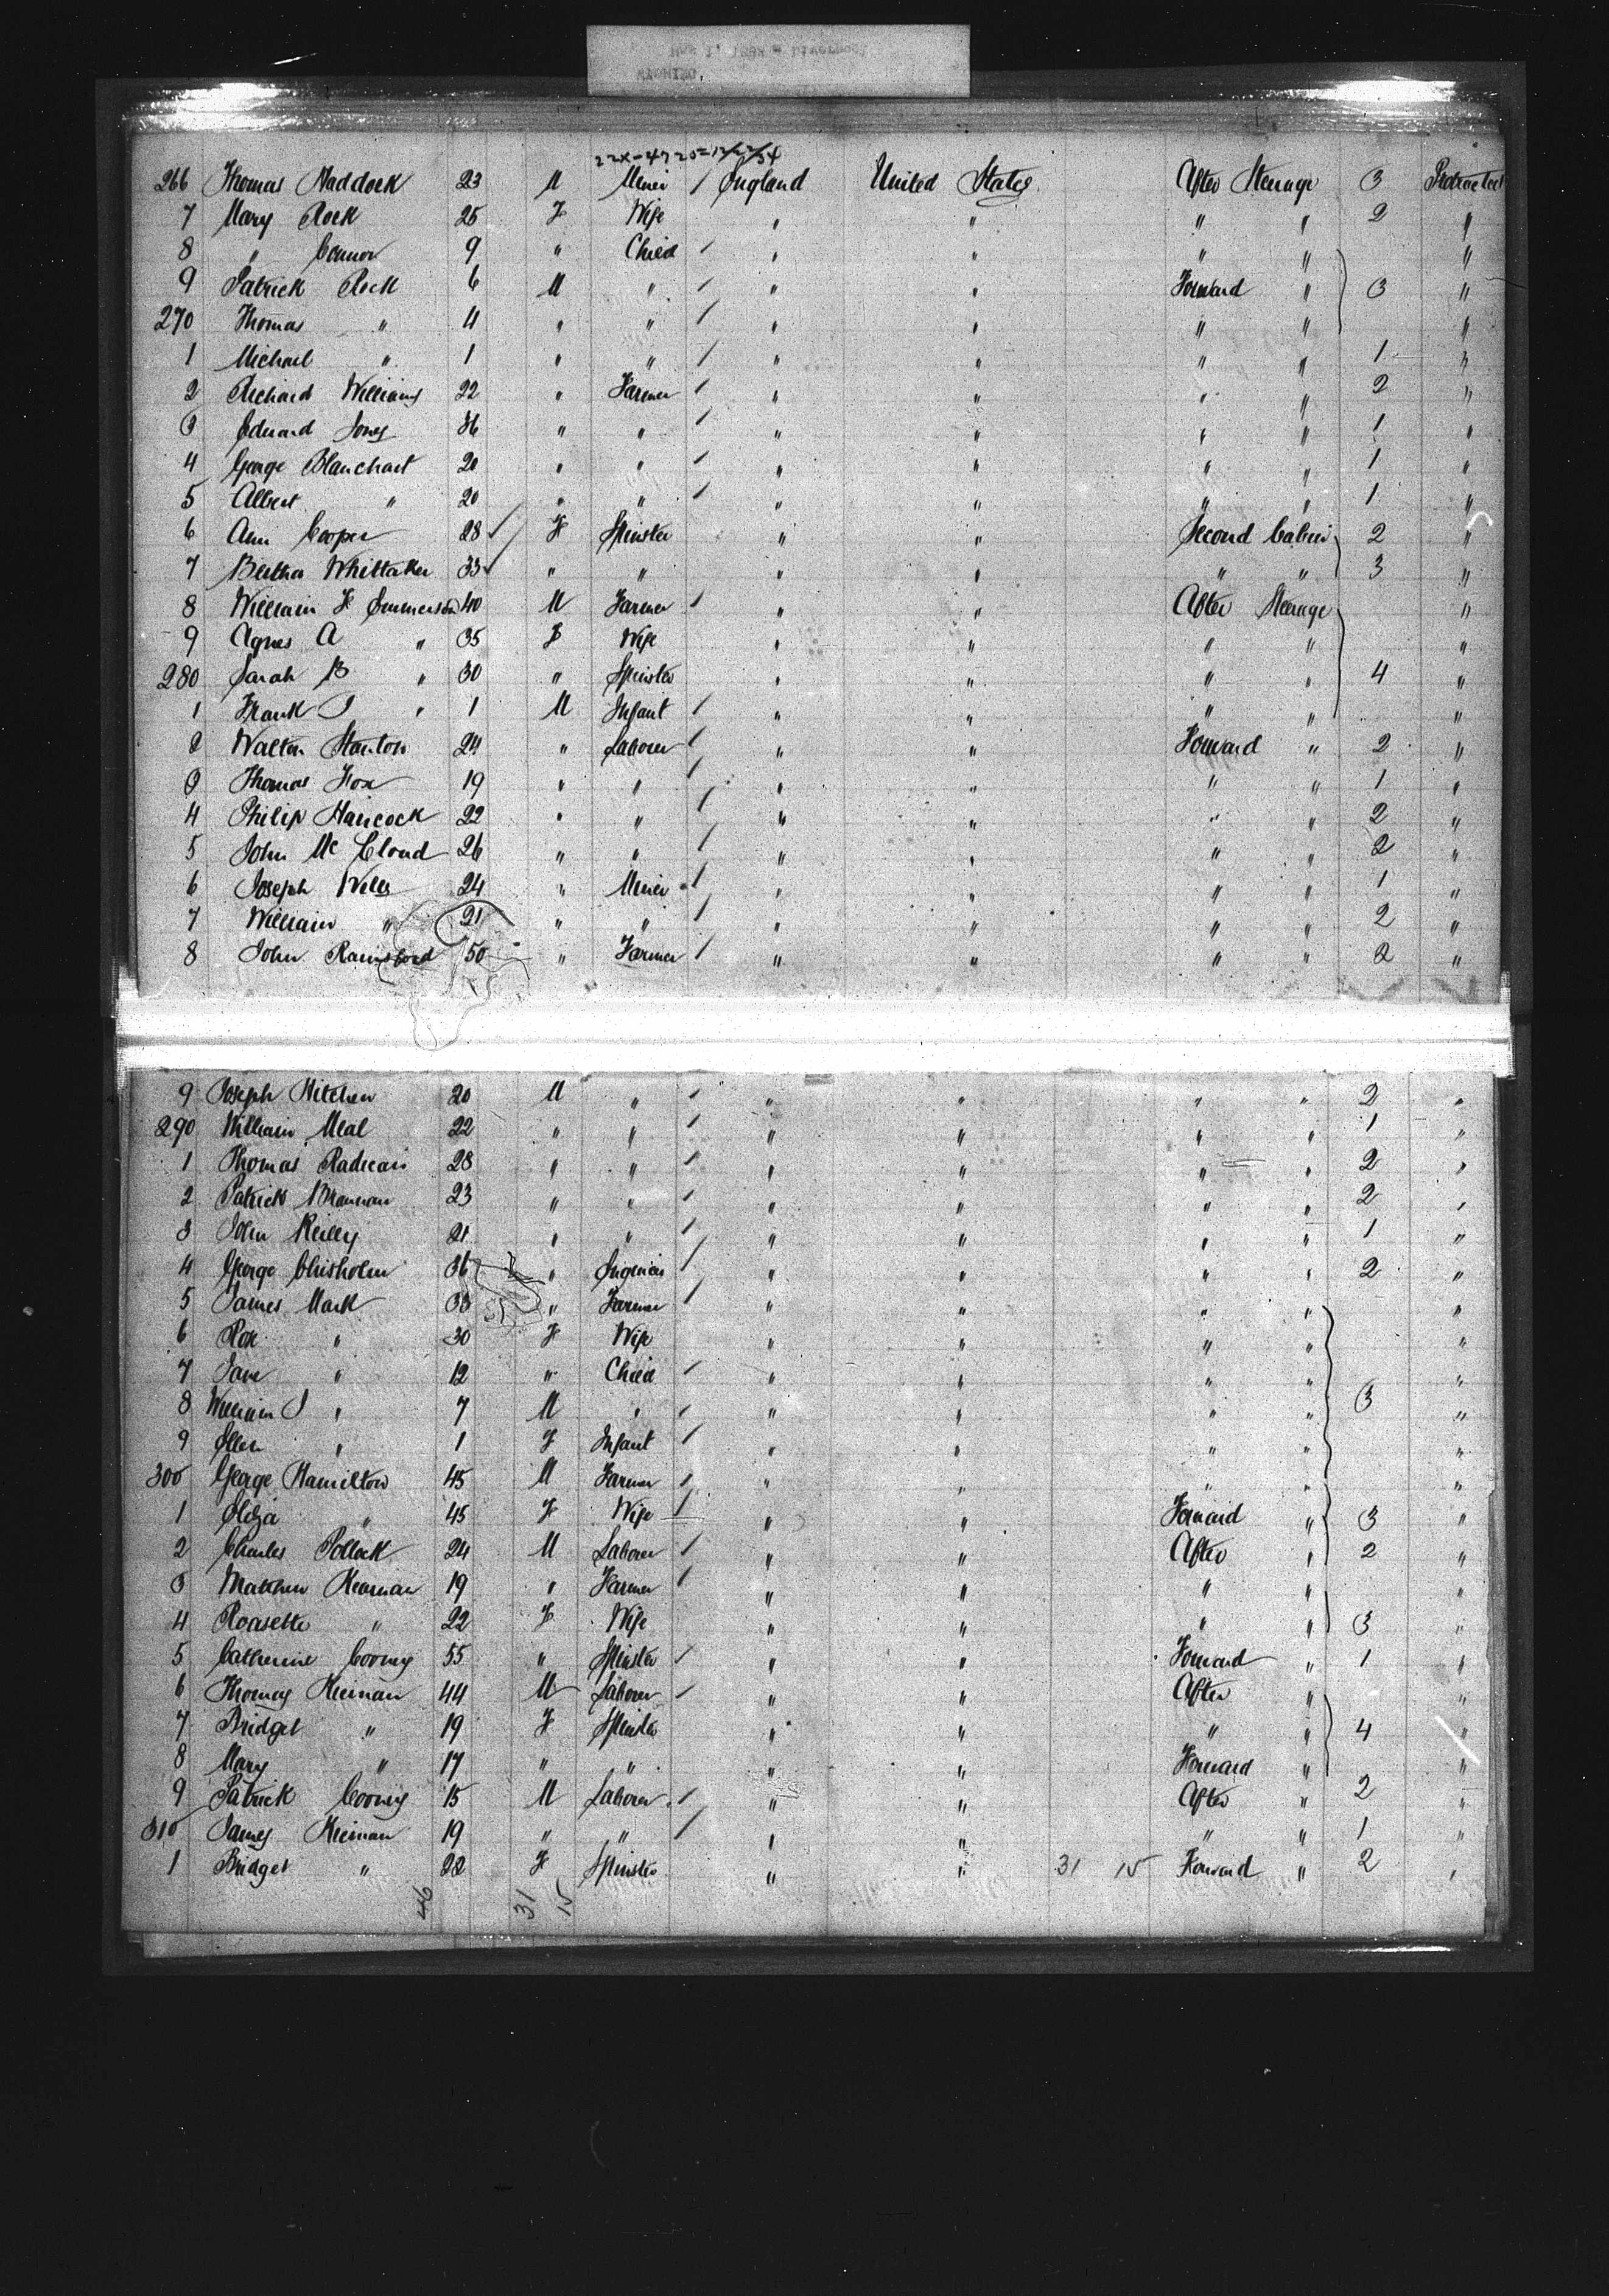 22X-4720=12/22/54
266 Thomas Haddock 23 M Miner / England United States After Steerage 3 Protracted
7 Mary Rock 25 F Wife " " " " 2 "
8 " Connor 9 " Child / " " " " "
9 Patrick Rock 6 M " / " " Forward " 3 "
270 Thomas " 4 " " / " " " " "
1 Michael " 1 " " / " " " " 1 "
2 Richard Williams 22 " Farmer / " " " " 2 "
3 Edward Jones 36 " " / " " " " 1 "
4 George Blanchart 20 " " / " " " " 1 "
5 Albert " 20 " " / " " " " 1 "
6 Ann Cooper 28 ✓ F Spinster " " Second Cabin 2 "
7 Bertha Whittaker 33 ✓ " " " " " " 3 "
8 William H Emmerson 40 M Farmer / " " After Steerage "
9 Agnes A " 35 F Wife " " " " "
280 Sarah B " 30 " Spinster " " " " 4 "
1 Frank J " 1 M Infant / " " " " "
2 Walter Stanton 24 " Laborer / " " Forward " 2 "
3 Thomas Fox 19 " " / " " " " 1 "
4 Philip Hancock 22 " " / " " " " 2 "
5 John Mc Cloud 26 " " / " " " " 2 "
6 Joseph Wells 24 " Miner / " " " " 1 "
7 William " 21 " " / " " " " 2 "
8 John Rainsford 50 " Farmer / " " " " 2 "
9 Joseph Hitchen 20 M " / " " " " 2 "
290 William Meal 22 " " / " " " " 1 "
1 Thomas Radican 28 " " / " " " " 2 "
2 Patrick Brannan 23 " " / " " " " 2 "
3 John Reilly 21 " " / " " " " 1 "
4 George Chisholm 36 " Engineer / " " " " 2 "
5 James Mark 33 " Farmer / " " " " "
6 Rose " 30 F Wife " " " " "
7 Jane " 12 " Child / " " " " "
8 William J " 7 M " / " " " " 3 "
9 Ellen " 1 F Infant / " " " " "
300 George Hamilton 45 M Farmer / " " " " "
1 Eliza " 45 F Wife / " " Forward " 3 "
2 Charles Pollock 24 M Laborer / " " After " 2 "
3 Matthew Kearnan 19 " Farmer / " " " " "
4 Roasette " 22 F Wife " " " " 3 "
5 Catherine Cooney 55 " Spinster / " " Forward " 1 "
6 Thomas Kiernan 44 M Laborer / " " After " "
7 Bridget " 19 F Spinster " " " " 4 "
8 Mary " 17 " " " " Forward " "
9 Patrick Cooney 15 M Laborer / " " After " 2 "
310 James Kiernan 19 " " / " " " " 1 "
1 Bridget " 22 F Spinster " " 31 15 Forward " 2 "
46 31 15